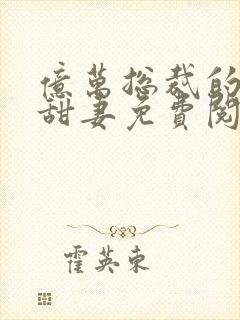 億萬總裁的
甜妻免費閱
霍英東